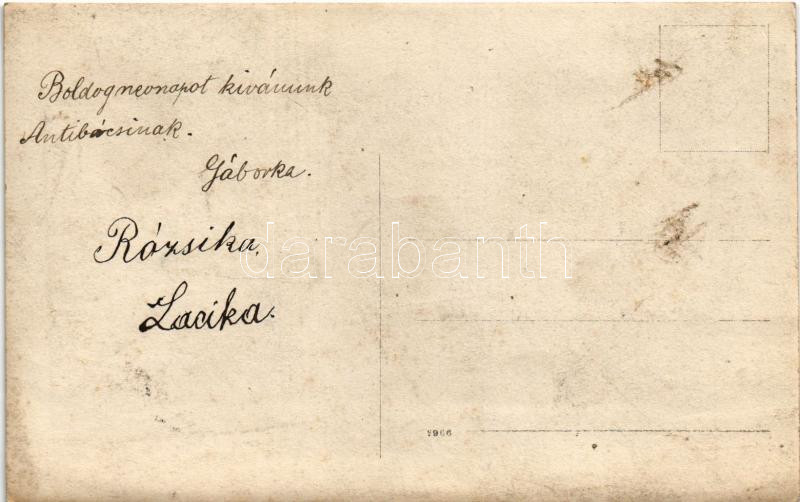 Boldogneonapot kivánunk
Antibácsinak.
Gáborka.
Rózsika,
Lacika.
darabanth
9966